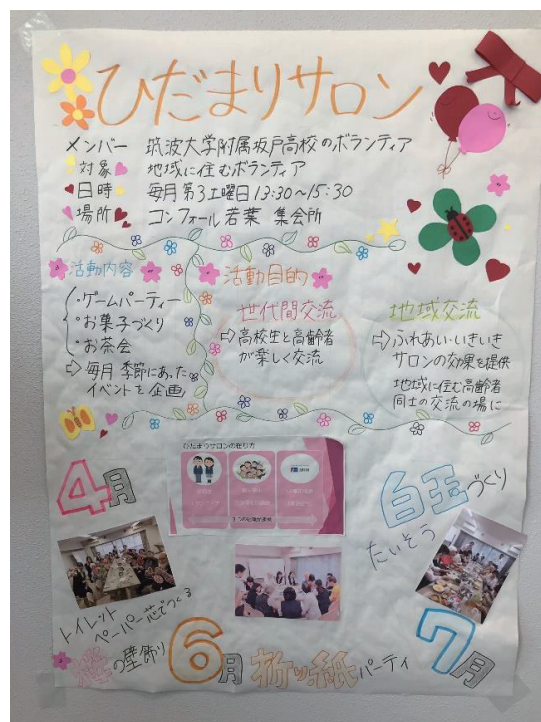 ひだまりサロン
メンバー 筑波大学附属坂戸高校のボランティア
対象 地域に住むボランティア
日時 毎月第3土曜日 13:30~15:30
場所 コンフォール若葉 集会所
活動内容
・ゲームパーティー
・お菓子づくり
・お茶会
⇨ 毎月 季節にあった
イベントを企画
活動目的
世代間交流
⇨ 高校生と高齢者
が楽しく交流
地域交流
⇨ ふれあい・いきいき
サロンの効果を提供
地域に住む高齢者
同士の交流の場に
ひだまりサロンの在り方
4月
トイレット
ペーパー芯でつくる
の壁飾り
6月
折り紙パーティ
白玉づくり
たいそう
7月